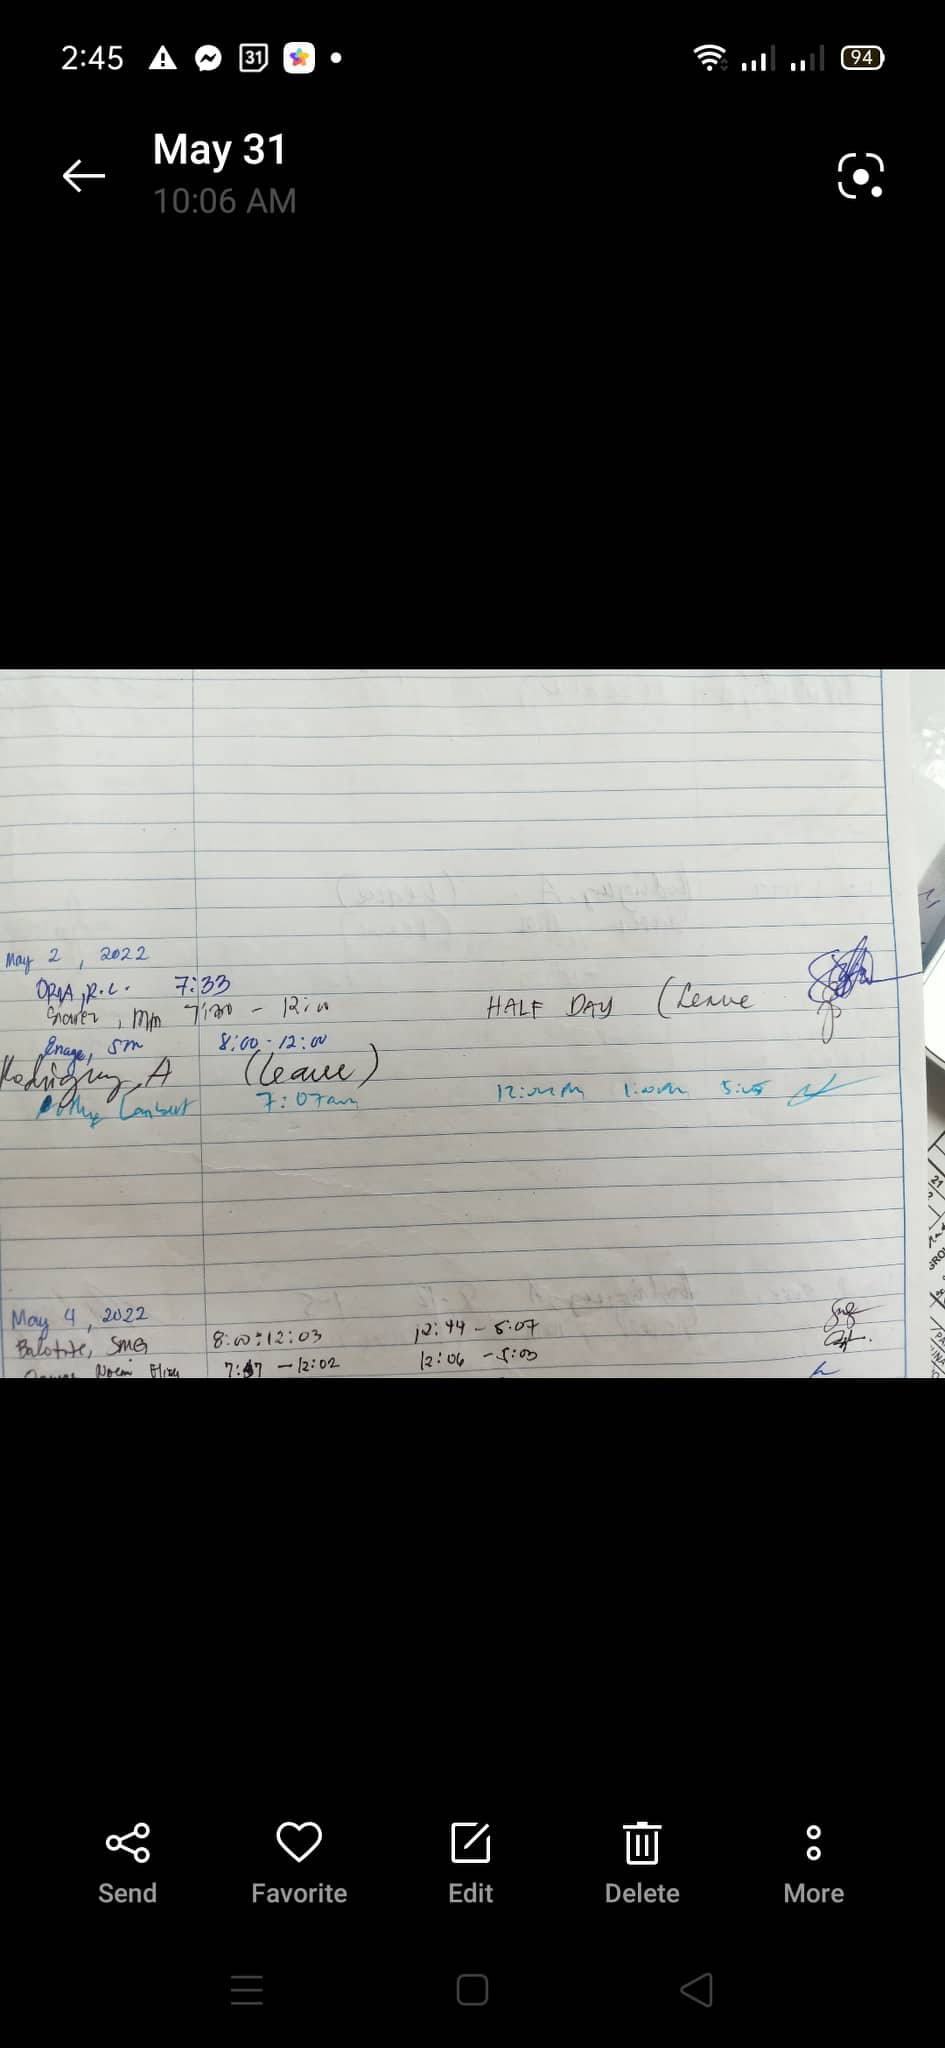 2:45 31 94
May 31
10:06 AM
May 2, 2022
ORQA, R.C. 7:33
Suarez, MM 7:30 - 12:00 HALF DAY (Leave
Enage, SM 8:00 - 12:00
Rodriguez, A (Leave)
Lambert 7:07am 12:00pm 1:00pm 5:05
May 4, 2022
Balotite, SMG 8:00-12:03 12:44 - 5:07
Noemi 7:47 - 12:02 12:06 - 5:03
Send Favorite Edit Delete More